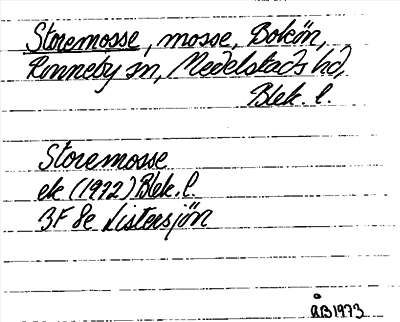 Storemosse, mosse, Bokön,
Ronneby sn, Medelstads hd,
Blek. l.
Storemosse
ek (1972) Blek. l.
3F 8e Listersjön
ÅB1973